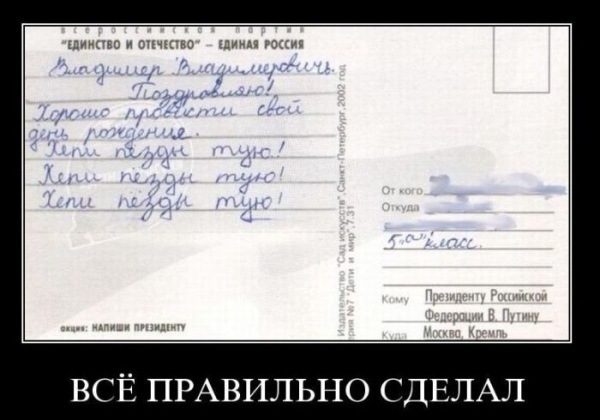 всероссийская партия
"ЕДИНСТВО И ОТЕЧЕСТВО" – ЕДИНАЯ РОССИЯ
Владимер Владимеровичь.
Поздравляю!
Хорошо провести свой
день рождение.
Хепи пёзды тую!
Хепи пёзды тую!
Хепи пёзды тую!
акция: НАПИШИ ПРЕЗИДЕНТУ
Издательство "Сад искусств", Санкт-Петербург, 2002 год
серия №7 "Дети и мир", 7.31
От кого
Откуда
5 "а" класс.
Кому Президенту Российской
Федерации В. Путину
Куда Москва, Кремль
ВСЁ ПРАВИЛЬНО СДЕЛАЛ